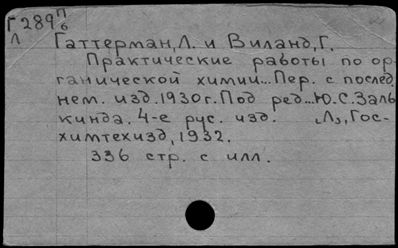 Г289 п/6
Л
Гаттерман, Л. и Виланд, Г.
Практические работы по ор-
ганической химии... Пер. с послед.
нем. изд. 1930г. Под ред... Ю.С. Заль
кинда. 4-е рус. изд. Л., Гос-
химтехизд, 1932.
336 стр. с илл.